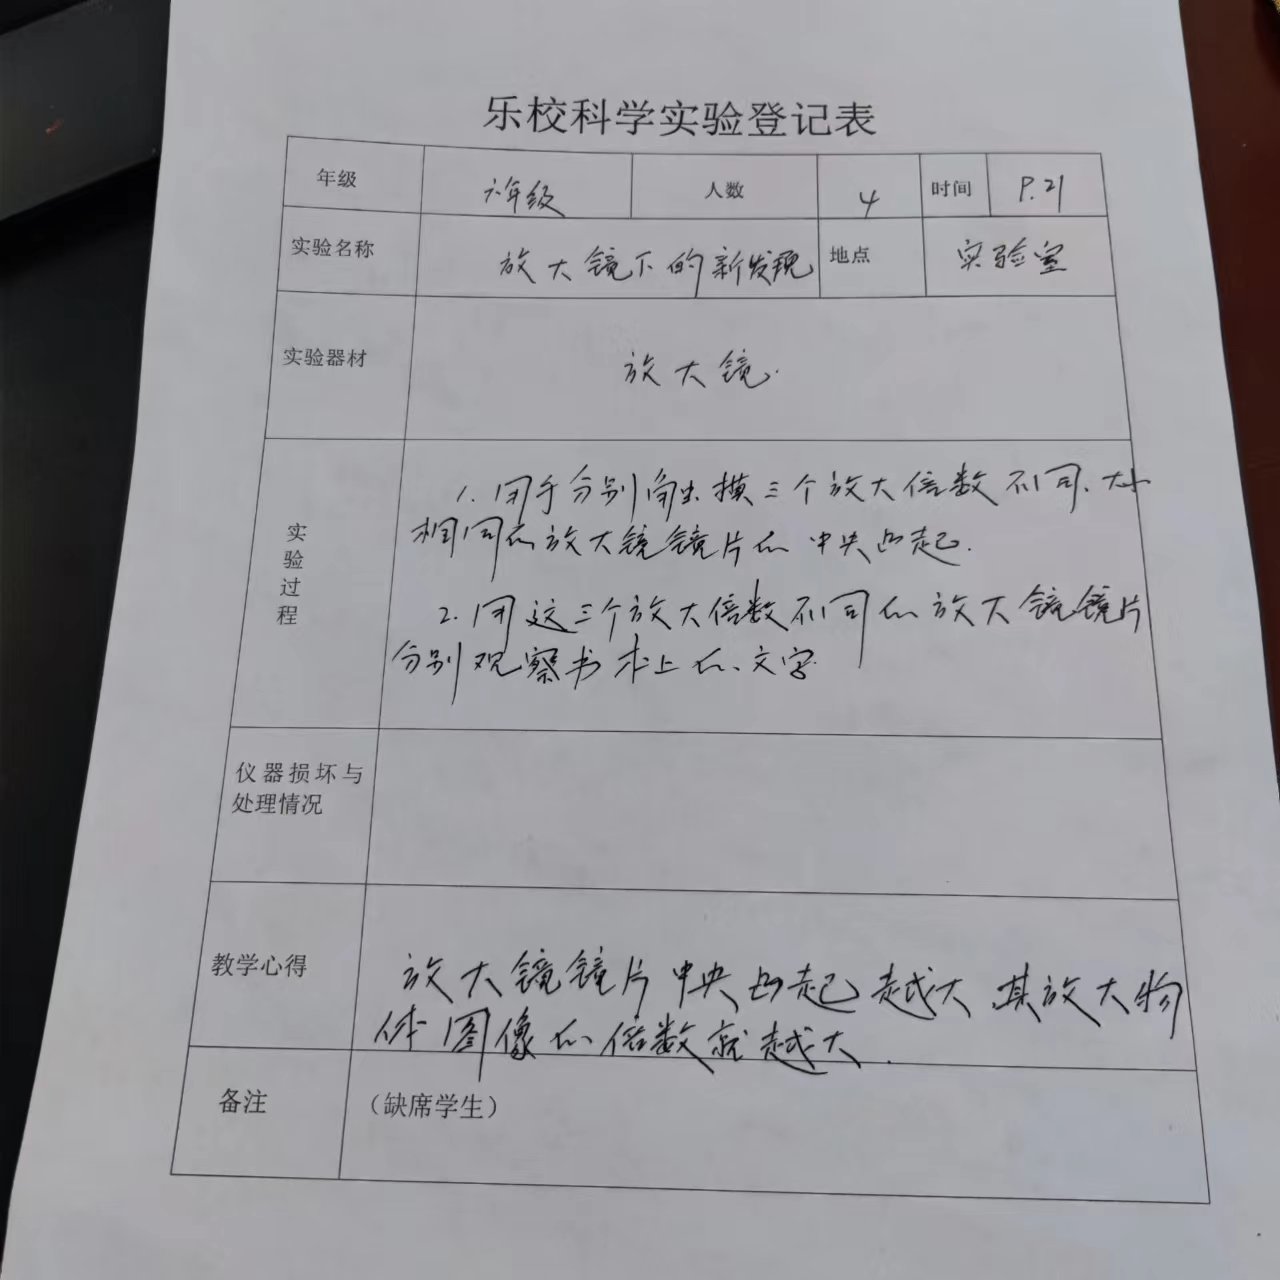 乐校科学实验登记表
年级 六年级 人数 4 时间 9.21
实验名称 放大镜下的新发现 地点 实验室
实验器材 放大镜.
实验过程
1. 用手分别 摸三个放大倍数不同、大小
相同的放大镜镜片的中央凸起.
2. 用这三个放大倍数不同的放大镜镜片
分别观察书本上的文字.
仪器损坏与
处理情况
教学心得
放大镜镜片中央凸起越大,其放大物
体图像的倍数就越大.
备注 （缺席学生）